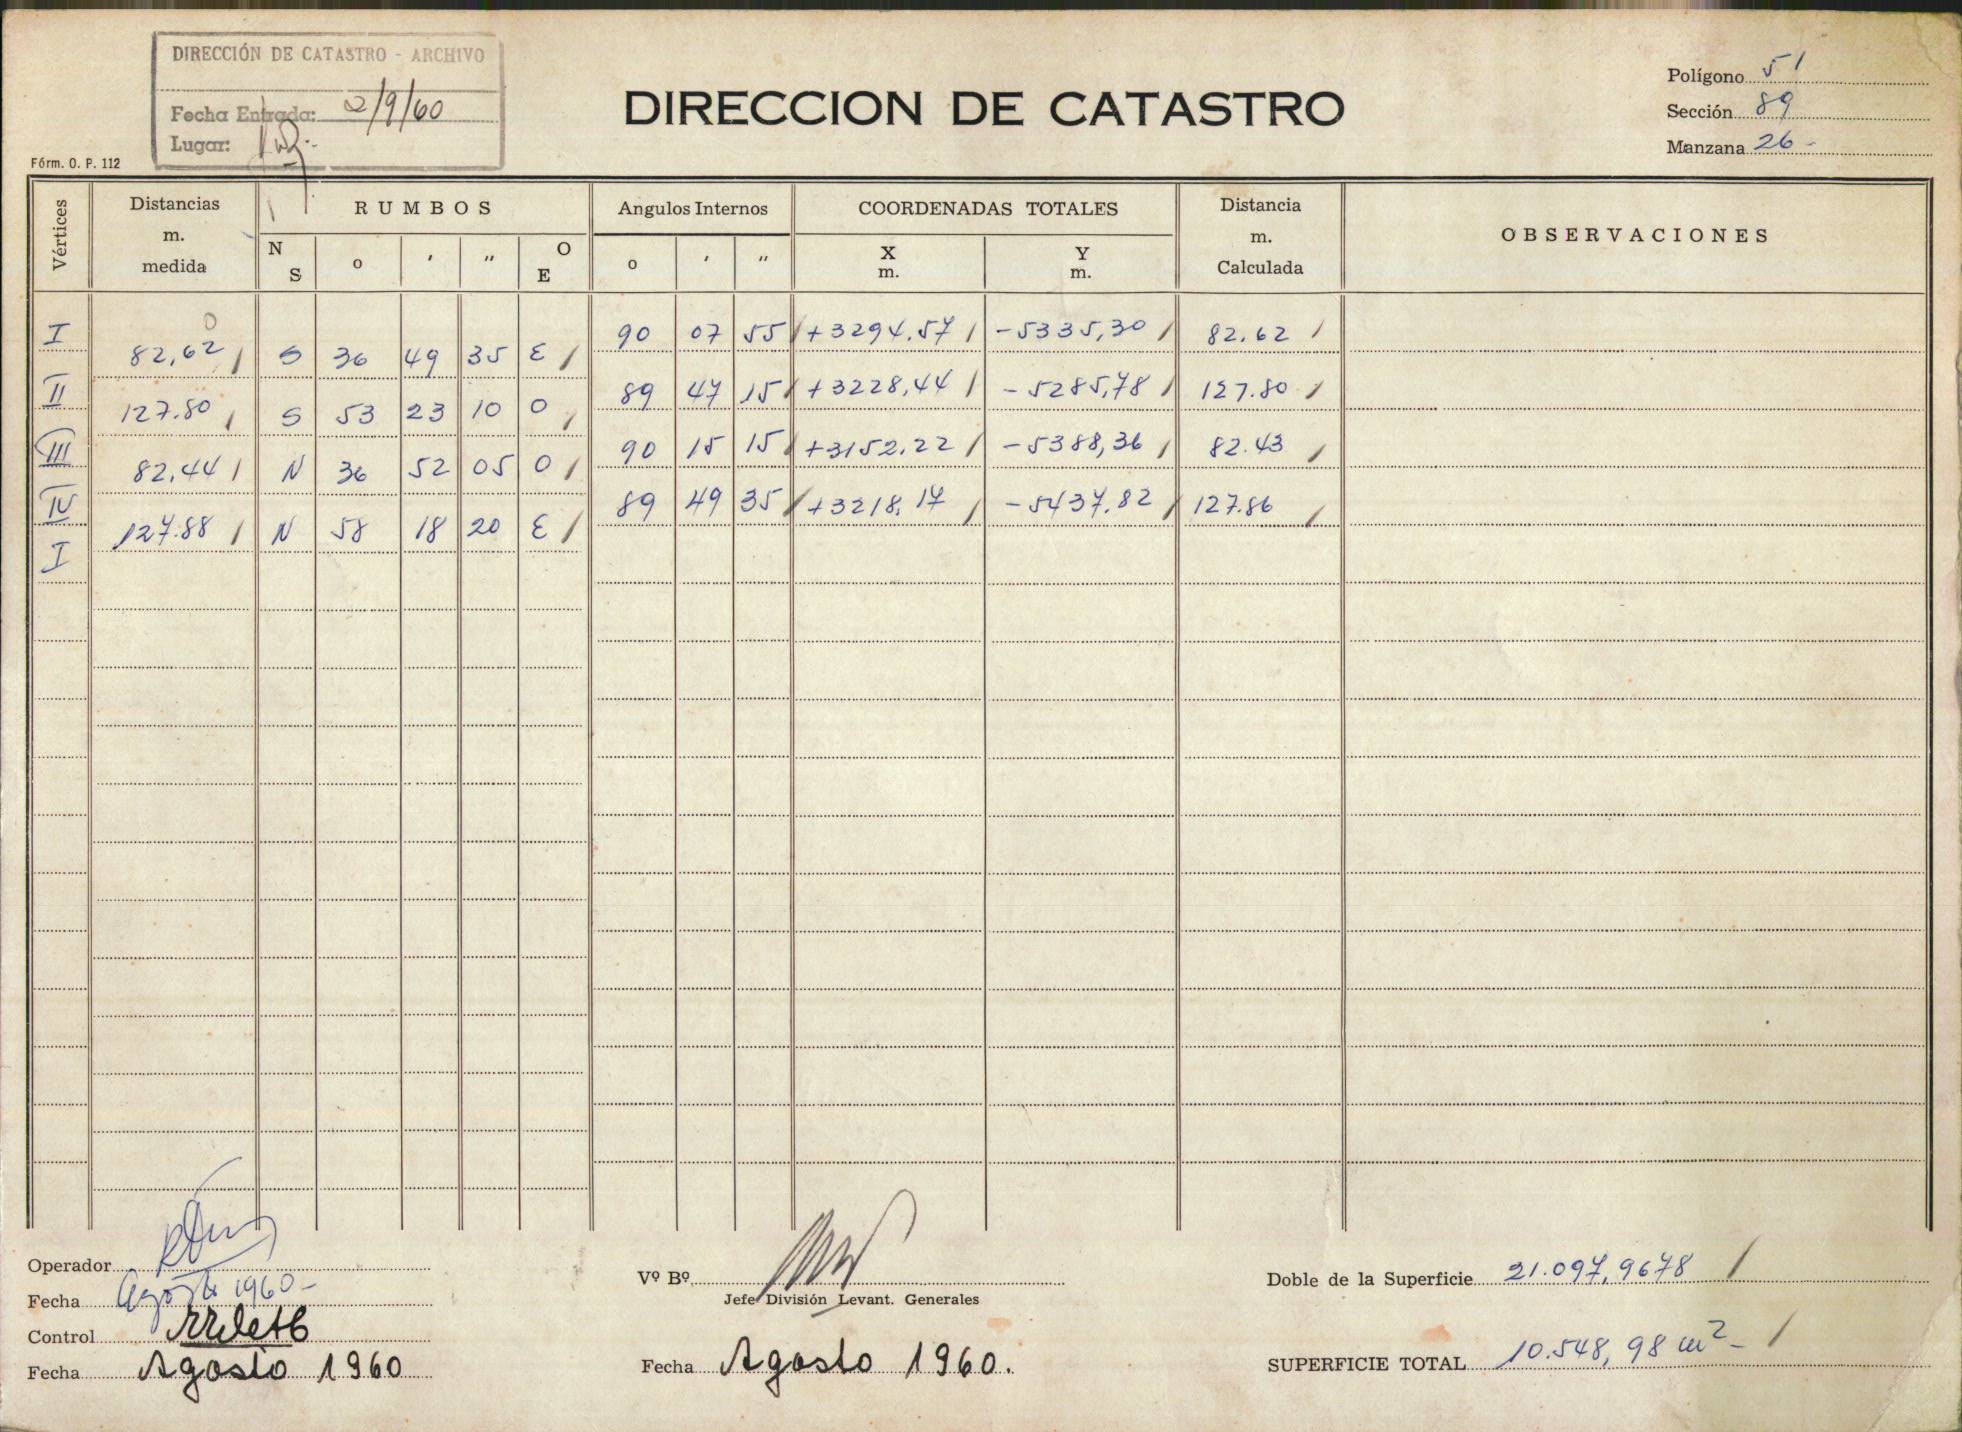 DIRECCIÓN DE CATASTRO - ARCHIVO
Fecha Entrada: 2/9/60
Lugar:
Fórm. O. P. 112
DIRECCION DE CATASTRO
Polígono 51
Sección 89
Manzana 26 -
Vértices
Distancias m. medida
RUMBOS
N S o ' " O E
Angulos Internos
o ' "
COORDENADAS TOTALES
X m. Y m.
Distancia m. Calculada
OBSERVACIONES
I 90 07 55 +3294.57 -5335,30 82.62
82,62 S 36 49 35 E
II 89 47 15 +3228,44 -5285,78 127.80
127.80 S 53 23 10 O
III 90 15 15 +3152.22 -5388,36 82.43
82,44 N 36 52 05 O
IV 89 49 35 +3218,17 -5437.82 127.86
127.88 N 58 18 20 E
I
Operador
Fecha Agosto 1960 -
Control
Fecha Agosto 1960
Vº Bº
Jefe División Levant. Generales
Fecha Agosto 1960.
Doble de la Superficie 21.097,9678
SUPERFICIE TOTAL 10.548,98 m² -